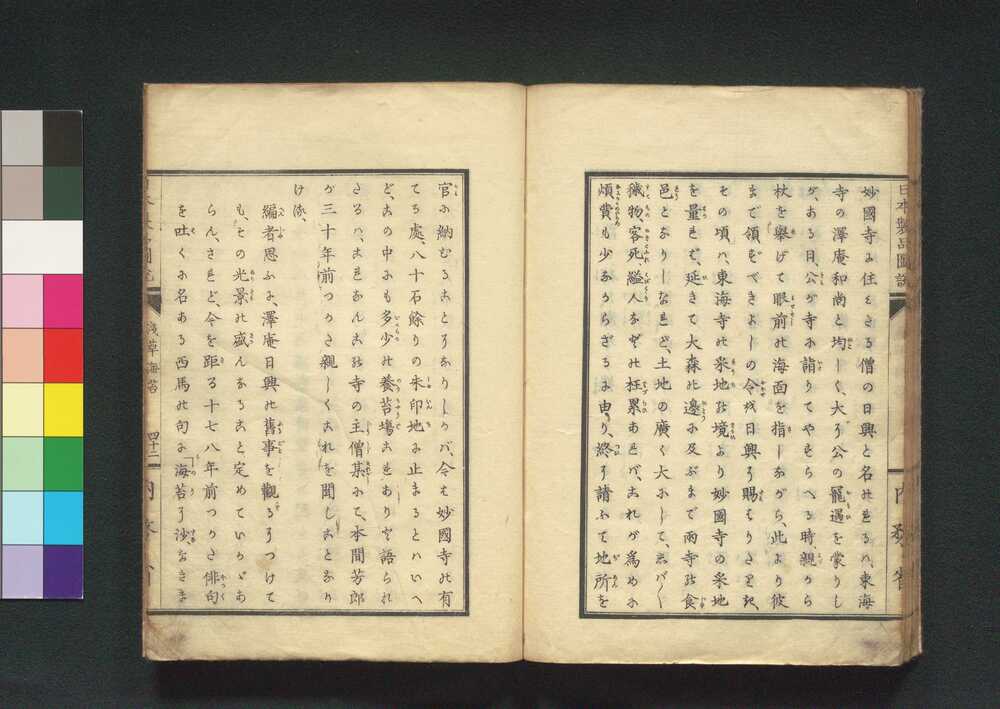 日本製品圖説
妙國寺に住せる僧の日興と名のれるハ、東海
寺の澤庵和尚と均しく、大に公の寵遇を蒙りし
が、ある日、公が寺に詣りてやすらへる時、親から
杖を舉げて眼前の海面を指しながら、此より彼
まで領すべきよしの令を日興に賜はりたりき、
その頃ハ、東海寺の采地の境より妙國寺の采地
を量れバ、延きて大森の邊に及ぶまで兩寺の食
邑となりしなれど、土地の廣く大にして、しバしバ
穢物、客死、縊人などの枉累あれバ、これが爲めに
煩費も少なからざるに由り、終に請ふて地所を
内務省
官に納むることとなりしかバ、今も妙國寺の有
てる處、八十石餘りの朱印地に止まるとハいへ
ど、この中にも多少の養苔塲これありと語られ
たるハ、これなんこの寺の主僧某にて、本間芳郎
が三十年前つかた親しくこれを聞しことなり
けり、
編者思ふに、澤庵日興の舊事を觀るにつけて
も、その光景の盛んなること定めていかゞあ
らん、されど、今を距る十七八年前つかた俳句
を吐くに名ある西馬の句に「海苔に沙なきま
淺草海苔
四十二
内務省